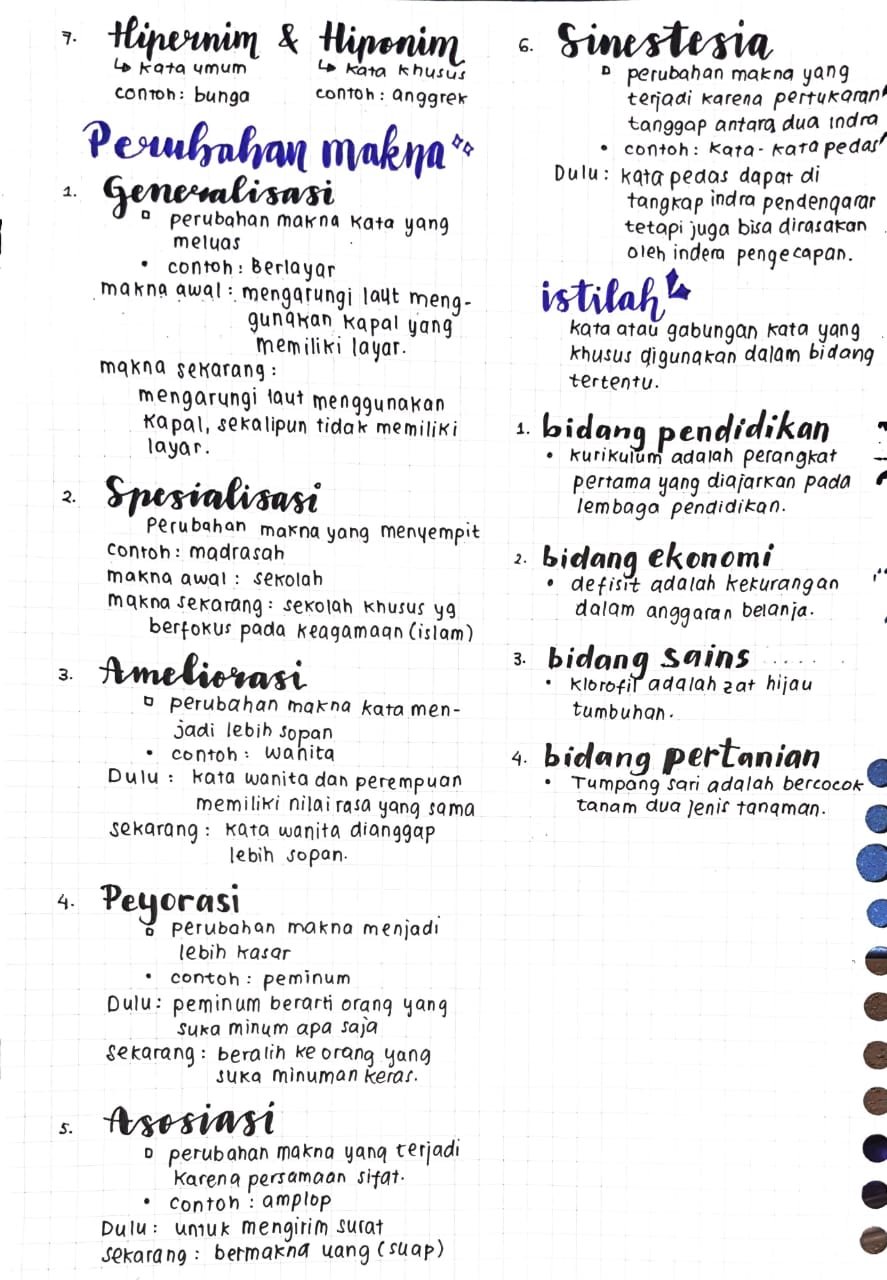 7. Hipernim & Hiponim
↳ kata umum ↳ kata khusus
contoh: bunga contoh: anggrek
Perubahan makna
1. Generalisasi
perubahan makna kata yang
meluas
• contoh: Berlayar
makna awal: mengarungi laut meng-
gunakan kapal yang
memiliki layar.
makna sekarang:
mengarungi laut menggunakan
kapal, sekalipun tidak memiliki
layar.
2. Spesialisasi
Perubahan makna yang menyempit
contoh: madrasah
makna awal: sekolah
makna sekarang: sekolah khusus yg
berfokus pada keagamaan (islam)
3. Ameliorasi
perubahan makna kata men-
jadi lebih sopan
• contoh: wanita
Dulu: kata wanita dan perempuan
memiliki nilai rasa yang sama
sekarang: kata wanita dianggap
lebih sopan.
4. Peyorasi
perubahan makna menjadi
lebih kasar
• contoh: peminum
Dulu: peminum berarti orang yang
suka minum apa saja
sekarang: beralih ke orang yang
suka minuman keras.
5. Asosiasi
perubahan makna yang terjadi
karena persamaan sifat.
• contoh: amplop
Dulu: untuk mengirim surat
sekarang: bermakna uang (suap)
6. Sinestesia
perubahan makna yang
terjadi karena pertukaran
tanggap antara dua indra
• contoh: kata-kata pedas
Dulu: kata pedas dapat di
tangkap indra pendengarar
tetapi juga bisa dirasakan
oleh indera pengecapan.
istilah
kata atau gabungan kata yang
khusus digunakan dalam bidang
tertentu.
1. bidang pendidikan
• kurikulum adalah perangkat
pertama yang diajarkan pada
lembaga pendidikan.
2. bidang ekonomi
• defisit adalah kekurangan
dalam anggaran belanja.
3. bidang sains .....
• klorofil adalah zat hijau
tumbuhan.
4. bidang pertanian
• Tumpang sari adalah bercocok
tanam dua jenis tanaman.